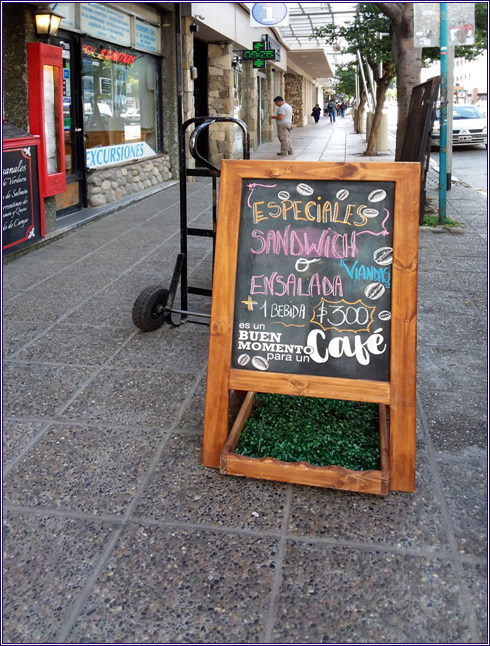 1
EXCURSIONES
ESPECIALES
SANDWICH
o
VIANDAS
ENSALADA
+ 1 BEBIDA $300
es un
BUEN
MOMENTO
para un Café